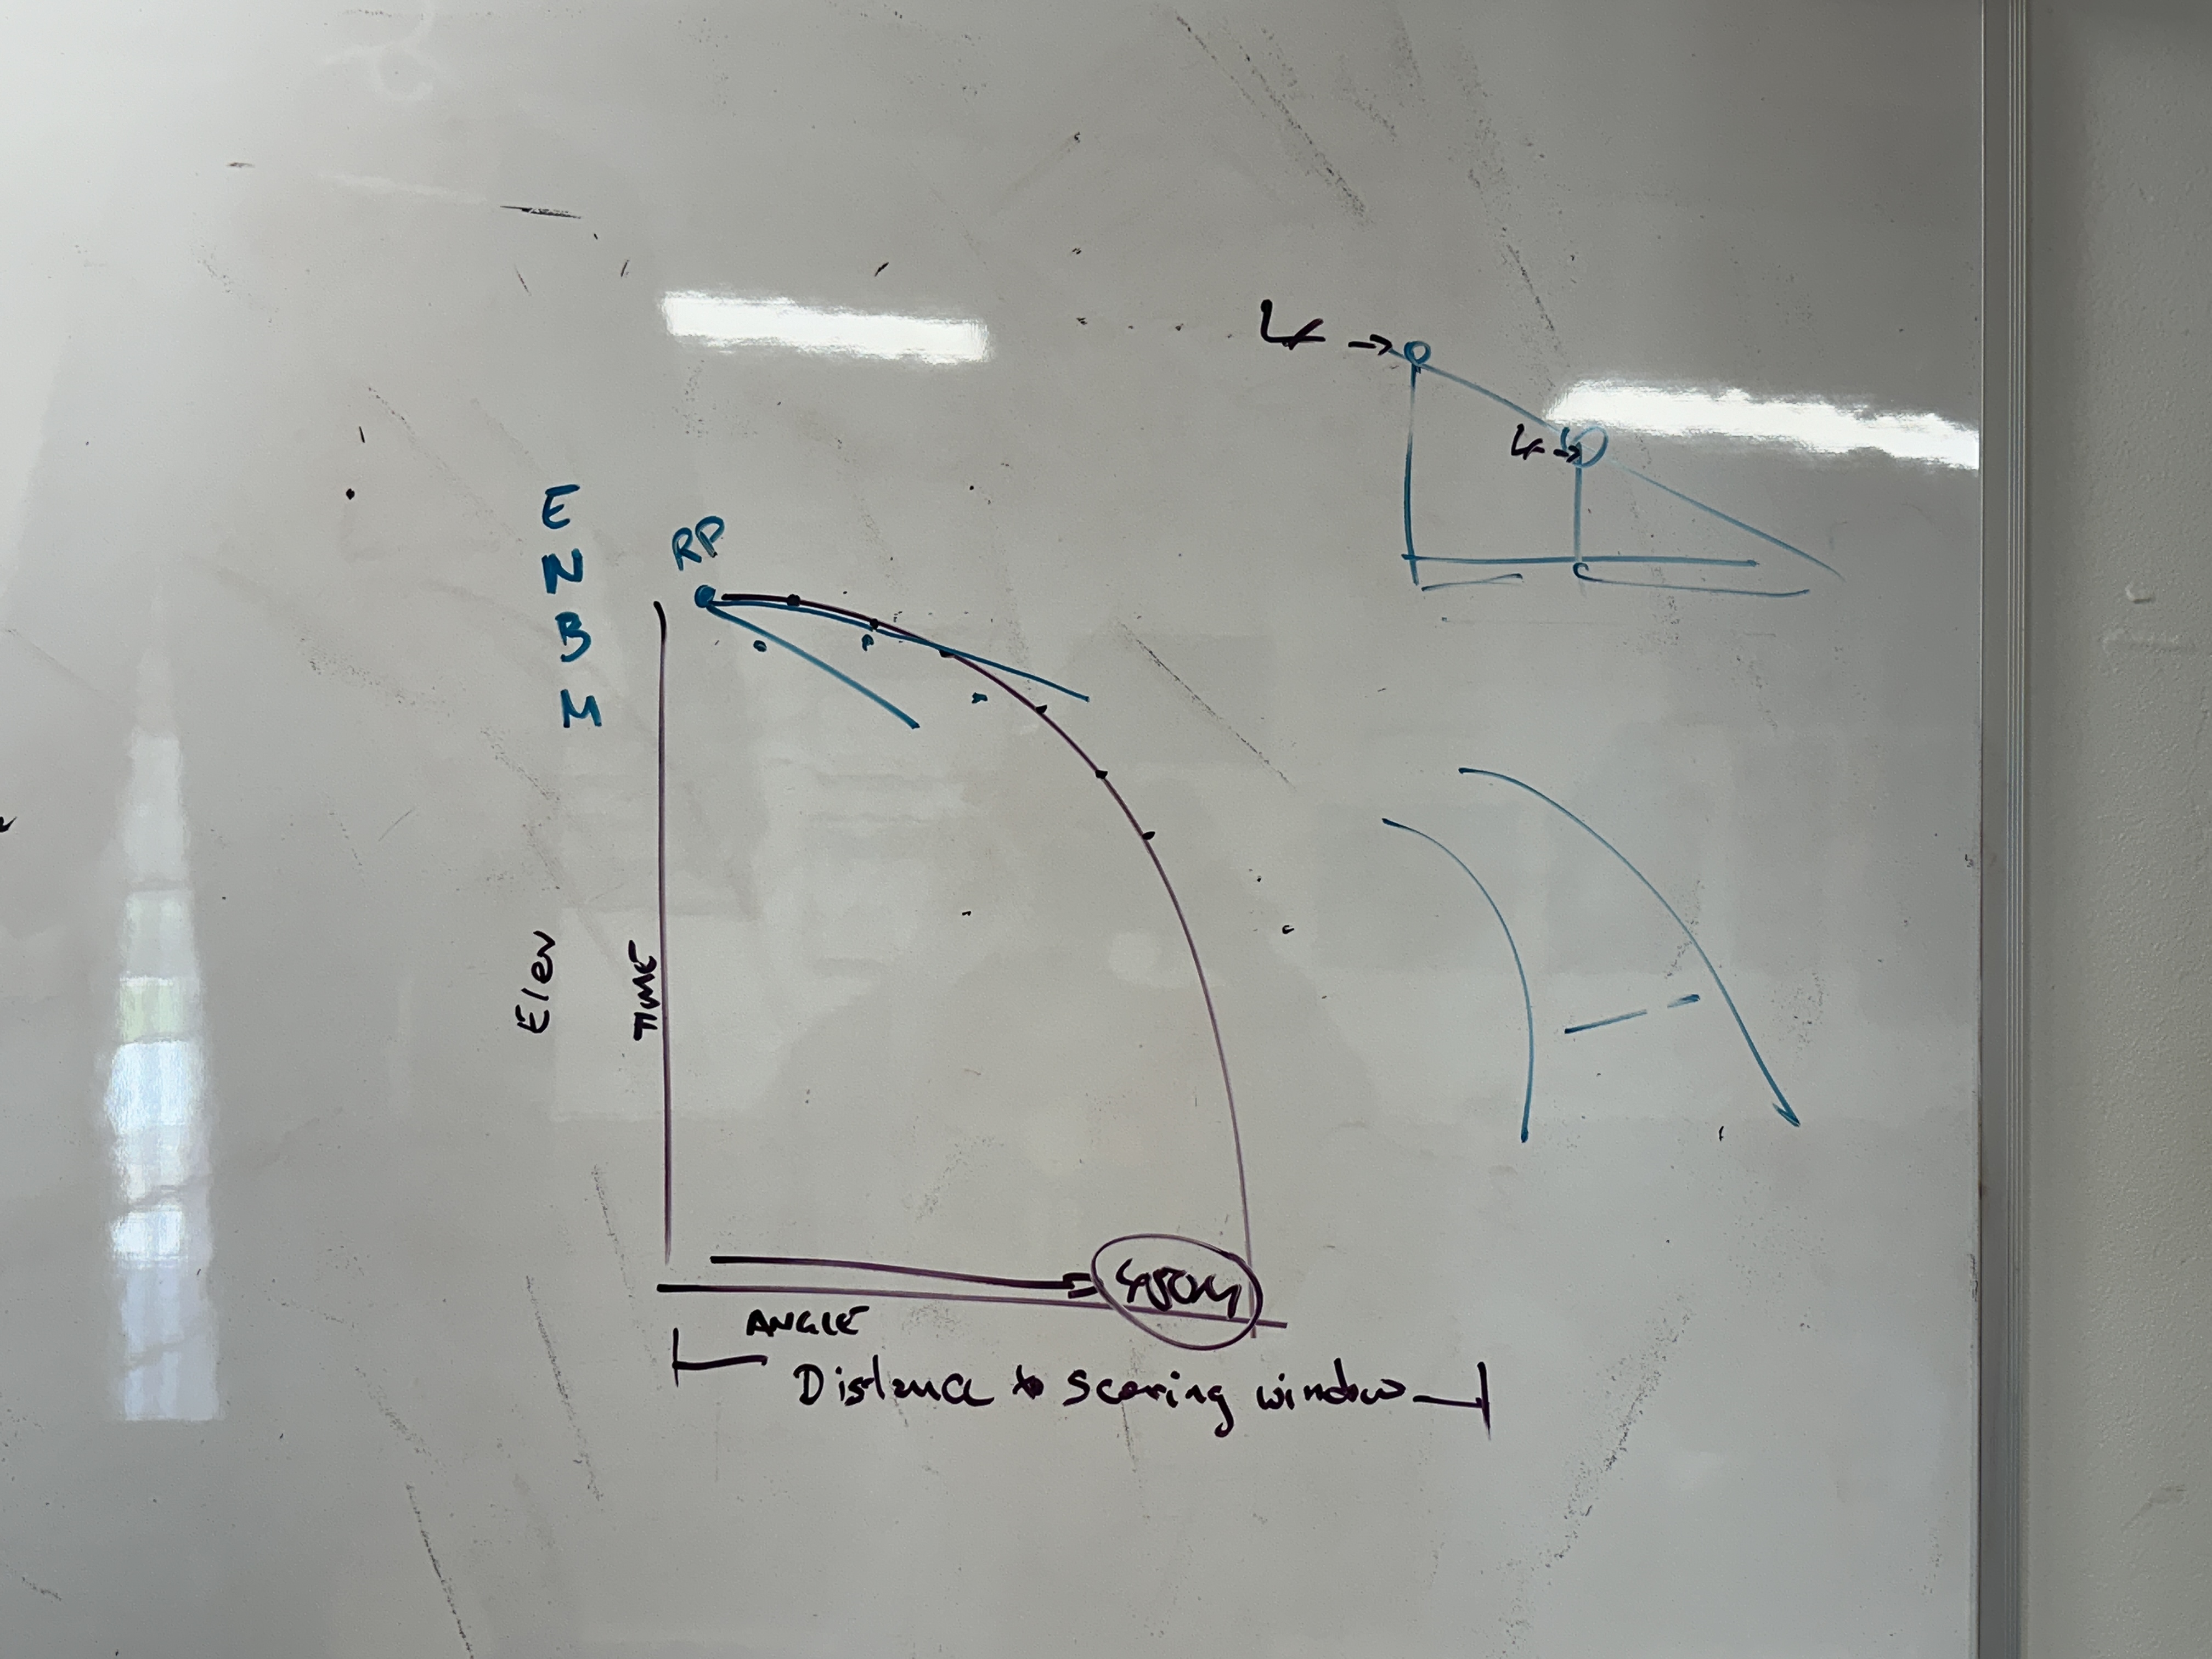 E
N
B
M
RP
Elev
TIME
ANGLE
Distance to scoring window